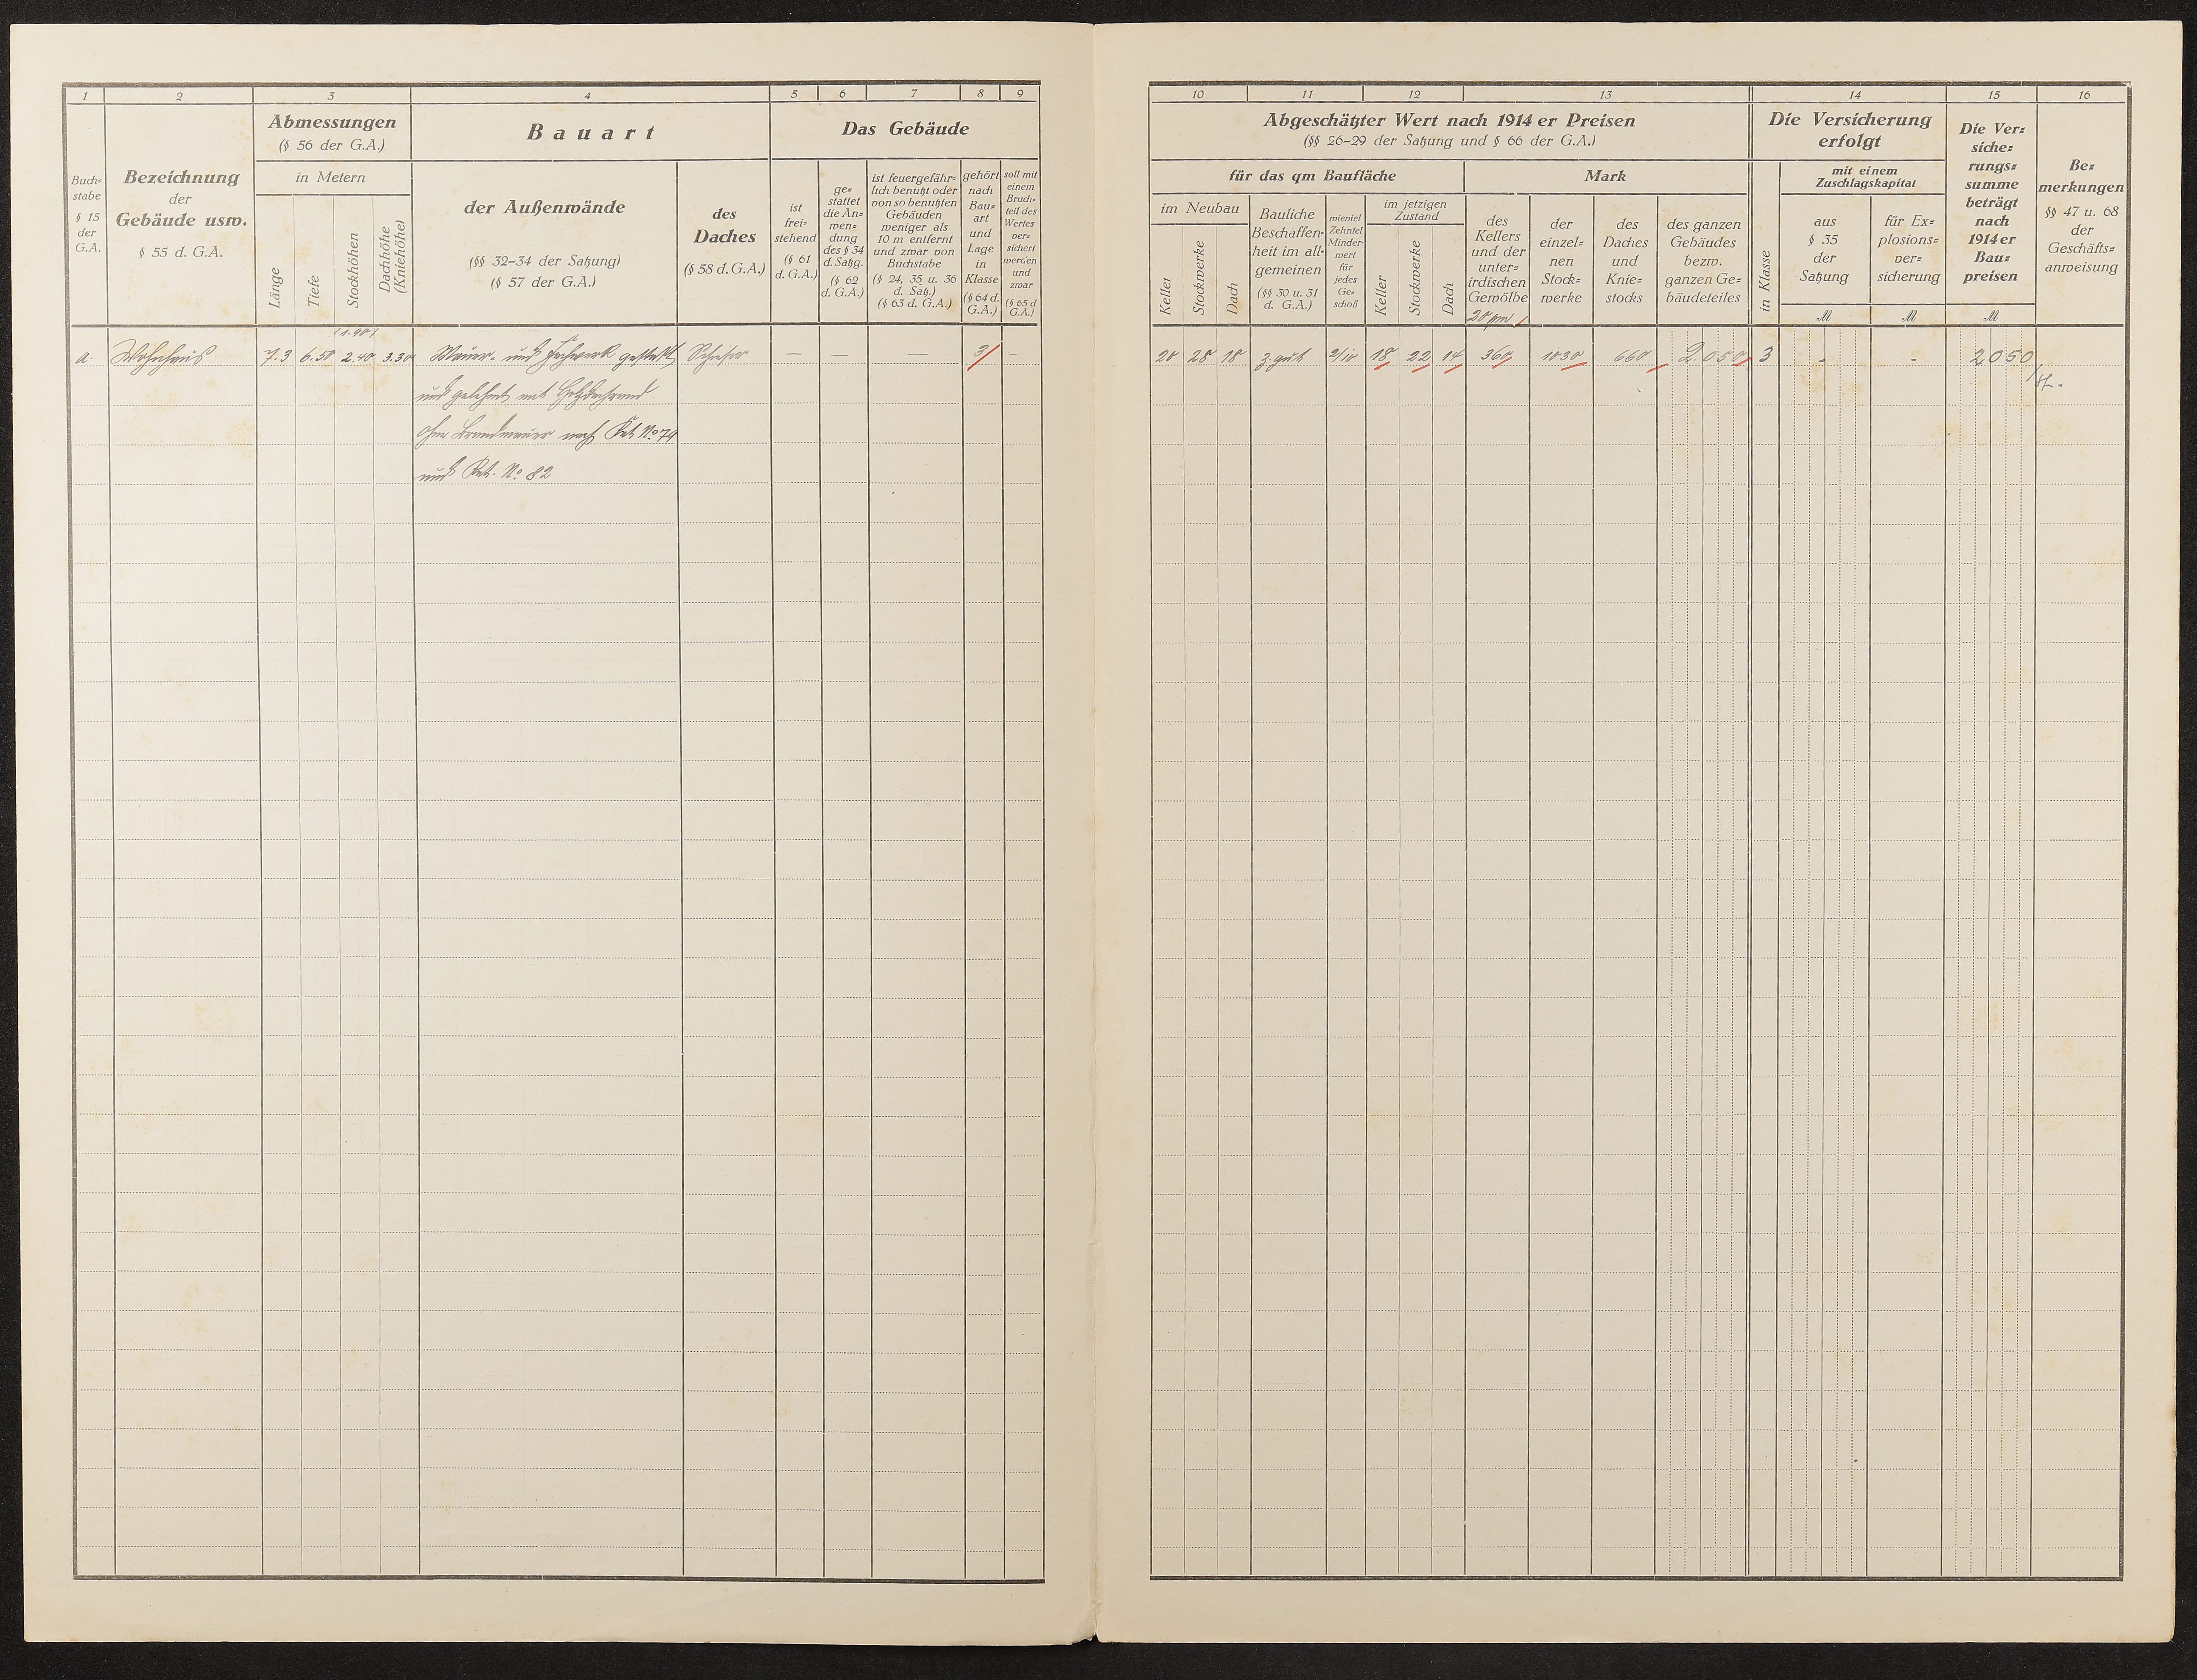 1
2
3
4
5
6
7
8
9
Buch=
stabe
§ 15
der
G.A.
Bezeichnung
der
Gebäude usw.
§ 55 d. G.A.
Abmessungen
(§ 56 der G.A.)
in Metern
Länge
Tiefe
Stockhöhen
Dachhöhe
(Kniehöhe)
Bauart
der Außenwände
(§§ 32–34 der Satzung)
(§ 57 der G.A.)
des
Daches
(§ 58 d. G.A.)
Das Gebäude
ist
frei=
stehend
(§ 61
d. G.A.)
ge=
stattet
die An=
wen=
dung
des § 34
d. Satzg.
(§ 62
d. G.A.)
ist feuergefähr=
lich benutzt oder
von so benutzten
Gebäuden
weniger als
10 m entfernt
und zwar von
Buchstabe
(§ 24, 35 u. 36
d. Satz.)
(§ 63 d. G.A.)
gehört
nach
Bau=
art
und
Lage
in
Klasse
(§ 64 d.
G.A.)
soll mit
einem
Bruch=
teil des
Wertes
ver=
sichert
werden
und
zwar
(§ 65 d
G.A.)
(1.90)
a. Wohnhaus 7.3 6.50 2.40 3.30 Mauer- und Fachwerk Schiefer — — — 3/ —
und gelehmt mit
ohne Brandmauer nach Kat. No 79
und Kat. No 82
10
11
12
13
14
15
16
Abgeschätzter Wert nach 1914er Preisen
(§§ 26–29 der Satzung und § 66 der G.A.)
für das qm Baufläche
im Neubau
Keller
Stockwerke
Dach
Bauliche
Beschaffen=
heit im all=
gemeinen
(§§ 30 u. 31
d. G.A.)
wieviel
Zehntel
Minder=
wert
für
jedes
Ge=
schoß
im jetzigen
Zustand
Keller
Stockwerke
Dach
Mark
des
Kellers
und der
unter=
irdischen
Gewölbe
20 qm
der
einzel=
nen
Stock=
werke
des
Daches
und
Knie=
stocks
des ganzen
Gebäudes
bezw.
ganzen Ge=
bäudeteiles
Die Versicherung
erfolgt
in Klasse
mit einem
Zuschlagskapital
aus
§ 35
der
Satzung
M
für Ex=
plosions=
ver=
sicherung
M
Die Ver=
siche=
rungs=
summe
beträgt
nach
1914er
Bau=
preisen
M
Be=
merkungen
§§ 47 u. 68
der
Geschäfts=
anweisung
20 28 18 z. gut 2/10 18 22 14 360 1030 660 2.050 3 - - 2050